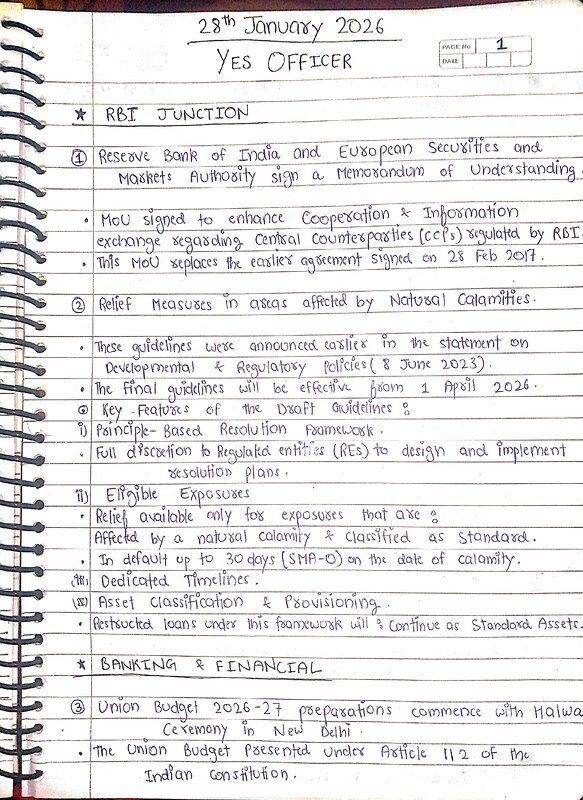 28th January 2026
YES OFFICER
PAGE No 1
DATE
★ RBI JUNCTION
① Reserve Bank of India and European Securities and
Markets Authority sign a Memorandum of Understanding.
• MoU signed to enhance Cooperation & Information
exchange regarding Central Counterparties (CCPs) regulated by RBI.
• This MoU replaces the earlier agreement signed on 28 Feb 2017.
② Relief Measures in areas affected by Natural Calamities.
• These guidelines were announced earlier in the statement on
Developmental & Regulatory Policies ( 8 June 2023).
• The final guidelines will be effective from 1 April 2026.
⊙ Key Features of the Draft Guidelines :
i) Principle-Based Resolution Framework.
• Full discretion to Regulated entities (REs) to design and implement
resolution plans.
ii) Eligible Exposures
• Relief available only for exposures that are :
Affected by a natural calamity & classified as Standard.
• In default up to 30 days (SMA-0) on the date of calamity.
iii) Dedicated Timelines.
iv) Asset Classification & Provisioning.
• Restructed loans under this framework will : Continue as Standard Assets.
★ BANKING & FINANCIAL
③ Union Budget 2026-27 preparations commence with Halwa
Ceremony in New Delhi.
• The Union Budget Presented under Article 112 of the
Indian Constitution.